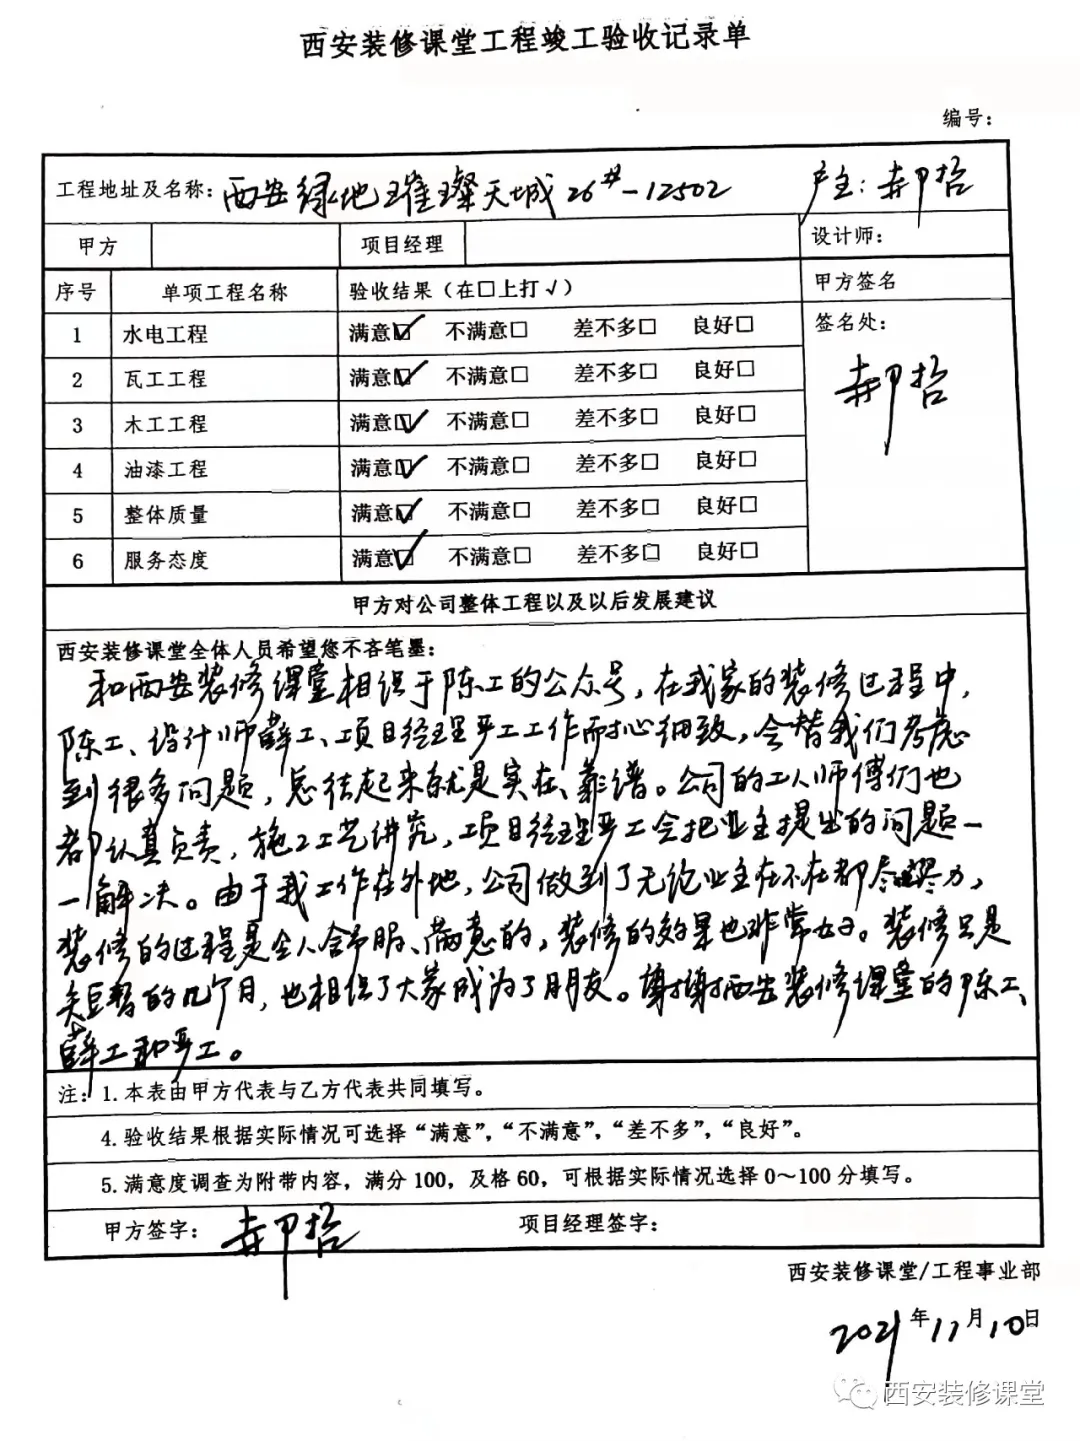 西安装修课堂工程竣工验收记录单
编号：
工程地址及名称：西安绿地璀璨天城26#-12502 户主：
甲方 项目经理 设计师：
序号 单项工程名称 验收结果（在□上打√） 甲方签名
1 水电工程 满意☑ 不满意□ 差不多□ 良好□ 签名处：
2 瓦工工程 满意☑ 不满意□ 差不多□ 良好□
3 木工工程 满意☑ 不满意□ 差不多□ 良好□
4 油漆工程 满意☑ 不满意□ 差不多□ 良好□
5 整体质量 满意☑ 不满意□ 差不多□ 良好□
6 服务态度 满意☑ 不满意□ 差不多□ 良好□
甲方对公司整体工程以及以后发展建议
西安装修课堂全体人员希望您不吝笔墨：
和西安装修课堂相识于陈工的公众号，在我家的装修过程中，
陈工、设计师薛工、项目经理严工工作耐心细致，会替我们考虑
到很多问题，总结起来就是实在、靠谱。公司的工人师傅们也
都认真负责，施工工艺讲究，项目经理严工会把业主提出的问题一
一解决。由于我工作在外地，公司做到了无论业主在不在都尽心尽力，
装修的过程是令人舒服、满意的，装修的效果也非常好。装修只是
短暂的几个月，也相识了大家成为了朋友。谢谢西安装修课堂的陈工、
薛工和严工。
注：1.本表由甲方代表与乙方代表共同填写。
4.验收结果根据实际情况可选择“满意”，“不满意”，“差不多”，“良好”。
5.满意度调查为附带内容，满分100，及格60，可根据实际情况选择0～100分填写。
甲方签字： 项目经理签字：
西安装修课堂/工程事业部
2021年11月10日
西安装修课堂